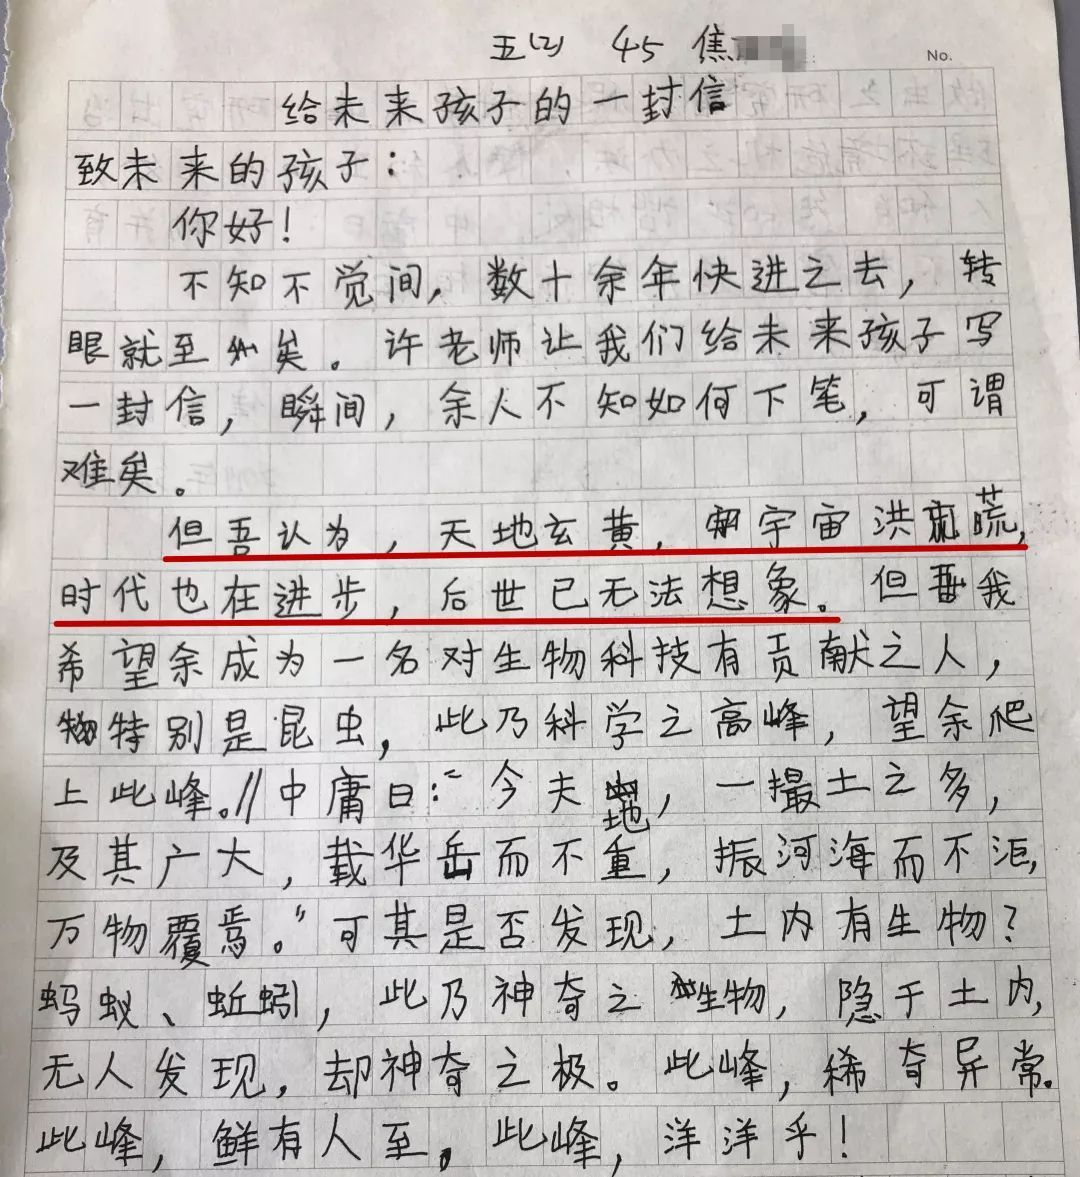 五(2) 45 焦
No.
给未来孩子的一封信
致未来的孩子：
你好！
不知不觉间，数十余年快进之去，转
眼就至矣。许老师让我们给未来孩子写
一封信，瞬间，余人不知如何下笔，可谓
难矣。
但吾认为，天地玄黄，宇宙洪荒，
时代也在进步，后世已无法想象。但我
希望余成为一名对生物科技有贡献之人，
特别是昆虫，此乃科学之高峰，望余爬
上此峰。//中庸曰：“今夫地，一撮土之多，
及其广大，载华岳而不重，振河海而不洰，
万物覆焉。”可其是否发现，土内有生物？
蚂蚁、蚯蚓，此乃神奇之生物，隐于土内，
无人发现，却神奇之极。此峰，稀奇异常。
此峰，鲜有人至，此峰，洋洋乎！